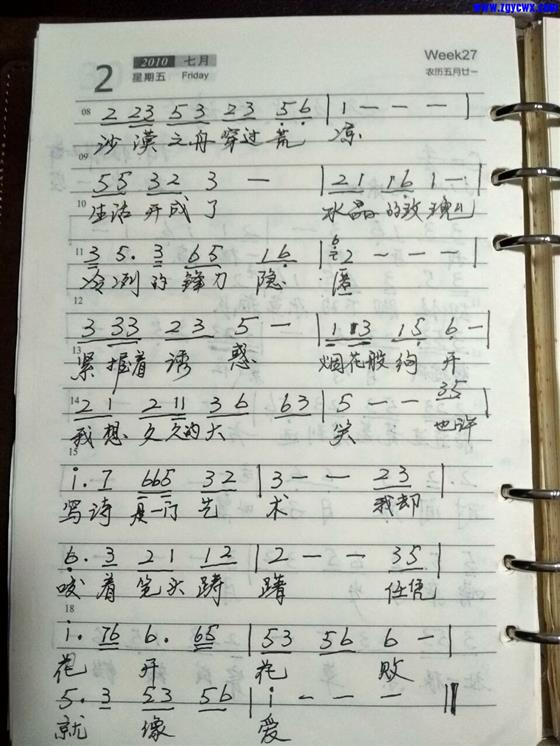 www.zgycwx.com
2 2010 七月 星期五 Friday
Week27
农历五月廿一
08 2 23 53 23 56 | 1 - - - |
沙漠之舟穿过荒 凉
09
55 32 3 - | 21 16 1 - |
10 生活开成了 水晶的玫瑰
11 3 5. 3 65 16 | 2 - - - |
冷冽的锋刀 隐 匿
12
3 33 23 5 - | 1 13 15 6 - |
13 紧握着诱 惑 烟花般绚 开
14 21 2 11 36 63 | 5 - - 35 |
我想久久的大 笑 也许
15
i. 7 665 32 | 3 - - 23 |
写诗是一门艺 术 我却
6. 3 21 12 | 2 - - 35 |
咬着笔头踌 躇 任凭
18
i. 76 6. 65 | 53 56 6 - |
花 开 花 败
5. 3 53 56 | i - - - ||
就 像 爱